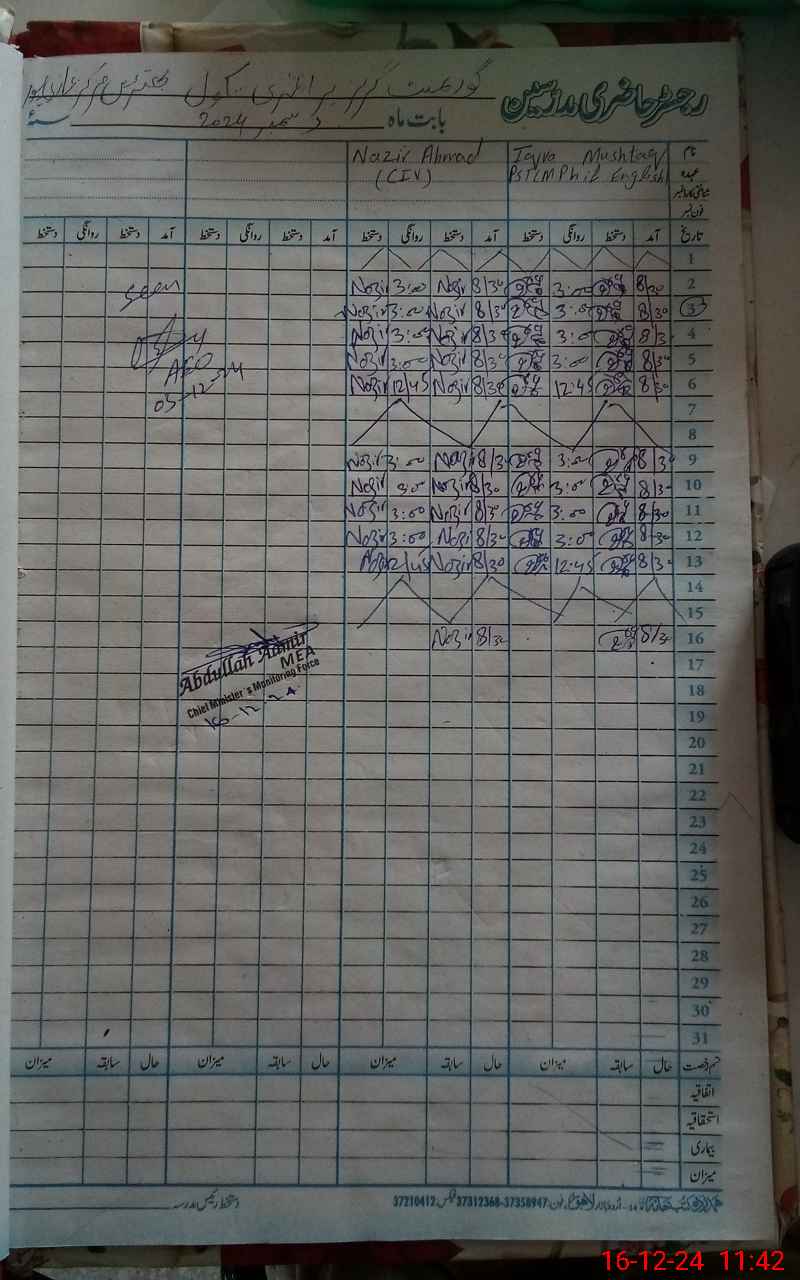 رجسٹر حاضری مدرسین
گورنمنٹ گرلز پرائمری سکول
بابت ماہ دسمبر 2024 سنۂ
نام Iqra Mushtaq Nazir Ahmad
عہدہ PST (M Phil English) (CIV)
شناختی کارڈ نمبر
فون نمبر
تاریخ آمد دستخط روانگی دستخط آمد دستخط روانگی دستخط آمد دستخط روانگی دستخط آمد دستخط روانگی دستخط
1
2 8/30 3:00 8/30 Nazir 3:00 Nazir
3 8/30 3:00 8/30 Nazir 3:00 Nazir
4 8/30 3:00 8/30 Nazir 3:00 Nazir
5 8/30 3:00 8/30 Nazir 3:00 Nazir
6 8/30 12:45 8/30 Nazir 12/45 Nazir
seen
AEO
05-12-24
7
8
9 8/30 3:00 8/30 Nazir 3:00 Nazir
10 8/30 3:00 8/30 Nazir 3:00 Nazir
11 8/30 3:00 8/30 Nazir 3:00 Nazir
12 8/30 3:00 8/30 Nazir 3:00 Nazir
13 8/30 12:45 8/30 Nazir 12/45 Nazir
14
15
16 8/30 8/30 Nazir
Abdullah Aamir
MEA
Chief Minister's Monitoring Force
16-12-24
17
18
19
20
21
22
23
24
25
26
27
28
29
30
31
قسم رخصت حال سابقہ میزان حال سابقہ میزان حال سابقہ میزان حال سابقہ میزان
اتفاقیہ
استحقاقیہ
بیماری
میزان
اُردو بازار لاہور فون: 37358947-37312368 فیکس: 37210412 دستخط رئیس مدرسہ
16-12-24 11:42